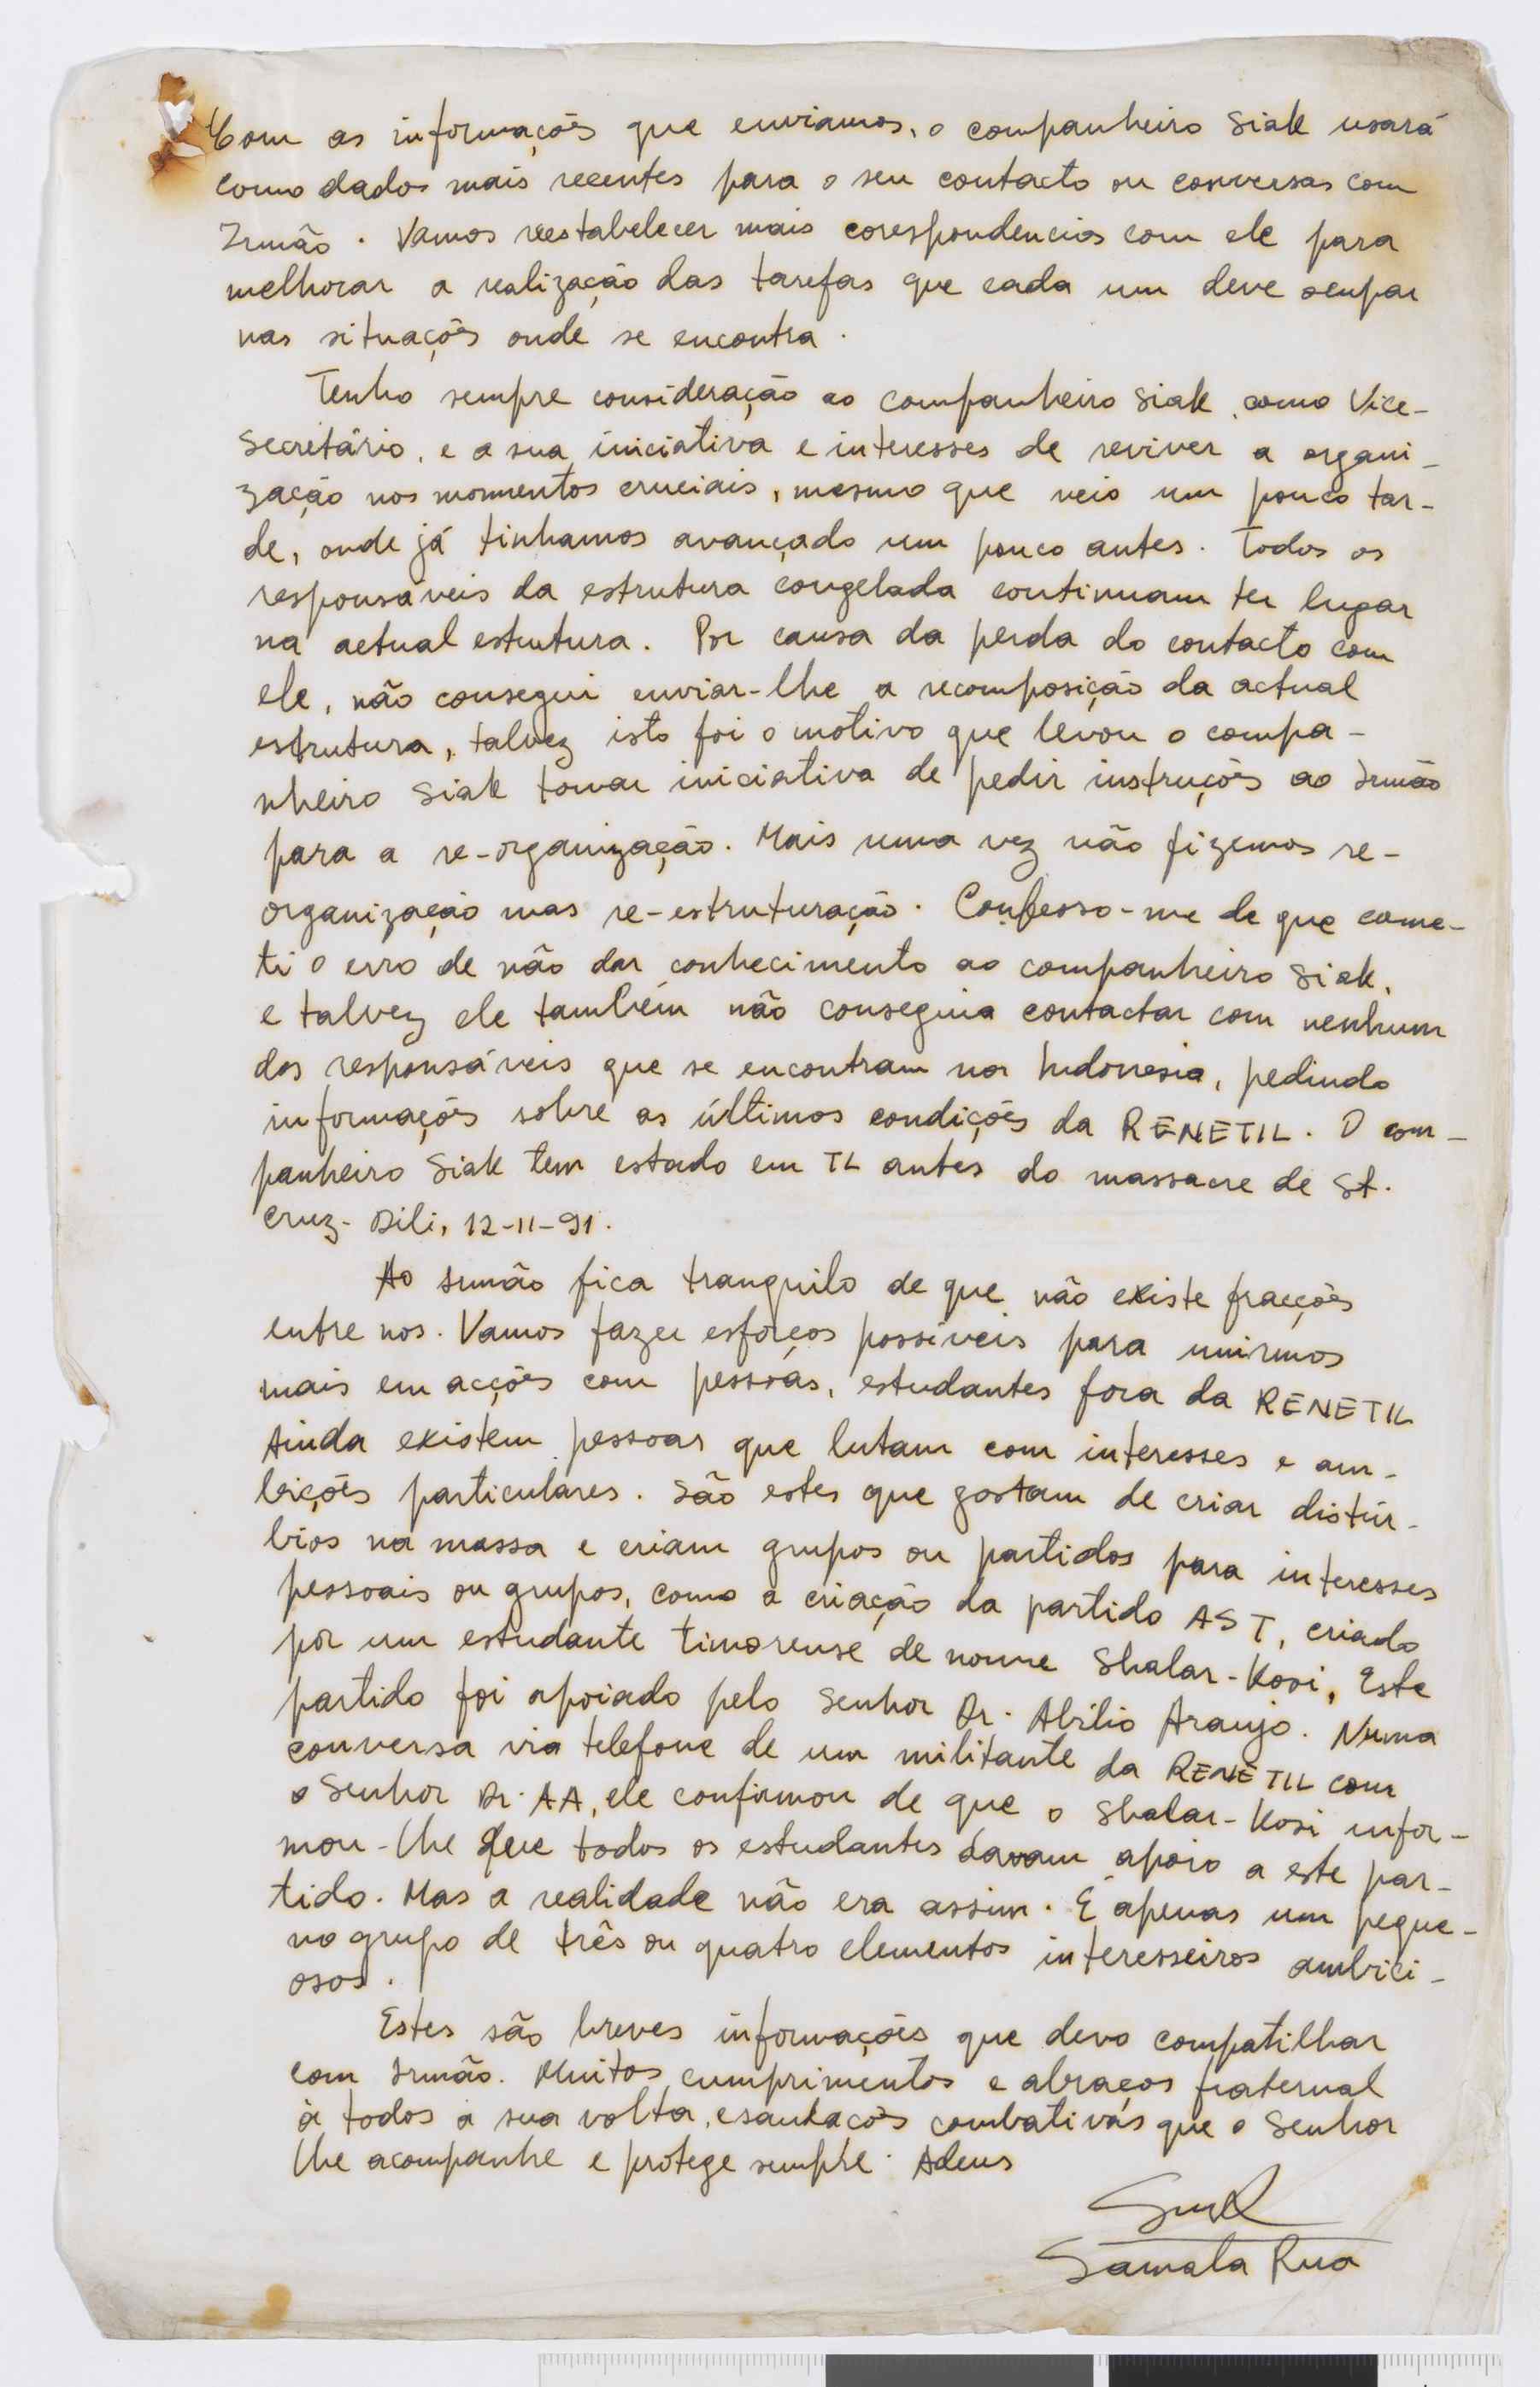 Com as informações que enviamos, o companheiro Siak usará
como dados mais recentes para o seu contacto ou conversas com
Irmão. Vamos reestabelecer mais corespondencias com ele para
melhorar a realização das tarefas que cada um deve ocupar
nas situações onde se encontra.
Tenho sempre consideração ao companheiro Siak, como Vice-
Secretário, e a sua iniciativa e interesses de reviver a organi-
zação nos momentos cruciais, mesmo que veio um pouco tar-
de, onde já tinhamos avançado um pouco antes. Todos os
responsáveis da estrutura congelada continuam ter lugar
na actual estrutura. Por causa da perda do contacto com
ele, não consegui enviar-lhe a recomposição da actual
estrutura, talvez isto foi o motivo que levou o compa-
nheiro Siak tomar iniciativa de pedir instruções ao Irmão
para a re-organização. Mais uma vez não fizemos re-
organização mas re-estruturação. Confesso-me de que come-
ti o erro de não dar conhecimento ao companheiro Siak,
e talvez ele também não conseguia contactar com nenhum
dos responsáveis que se encontram na Indonesia, pedindo
informações sobre as últimas condições da RENETIL. O com-
panheiro Siak tem estado em TL antes do massacre de St.
Cruz - Dili, 12-11-91.
Ao Irmão fica tranquilo de que não existe fracções
entre nos. Vamos fazer esforços possíveis para unirmos
mais em acções com pessoas, estudantes fora da RENETIL
Ainda existem pessoas que lutam com interesses e am-
bições particulares. São estes que gostam de criar distúr-
bios na massa e criam grupos ou partidos para interesses
pessoais ou grupos, como a criação da partido AST, criado
por um estudante timorense de nome Shalar-Kosi, Este
partido foi apoiado pelo Senhor Dr. Abílio Araujo. Numa
conversa via telefone de um militante da RENETIL com
o Senhor Dr. AA, ele confirmou de que o Shalar-Kosi infor-
mou-lhe que todos os estudantes davam apoio a este par-
tido. Mas a realidade não era assim. É apenas um peque-
no grupo de três ou quatro elementos interesseiros ambici-
osos.
Estes são breves informações que devo compatilhar
com Irmão. Muitos cumprimentos e abraços fraternal
à todos a sua volta, e saudacões combativas que o Senhor
lhe acompanhe e protege sempre. Adeus
Samala Rua